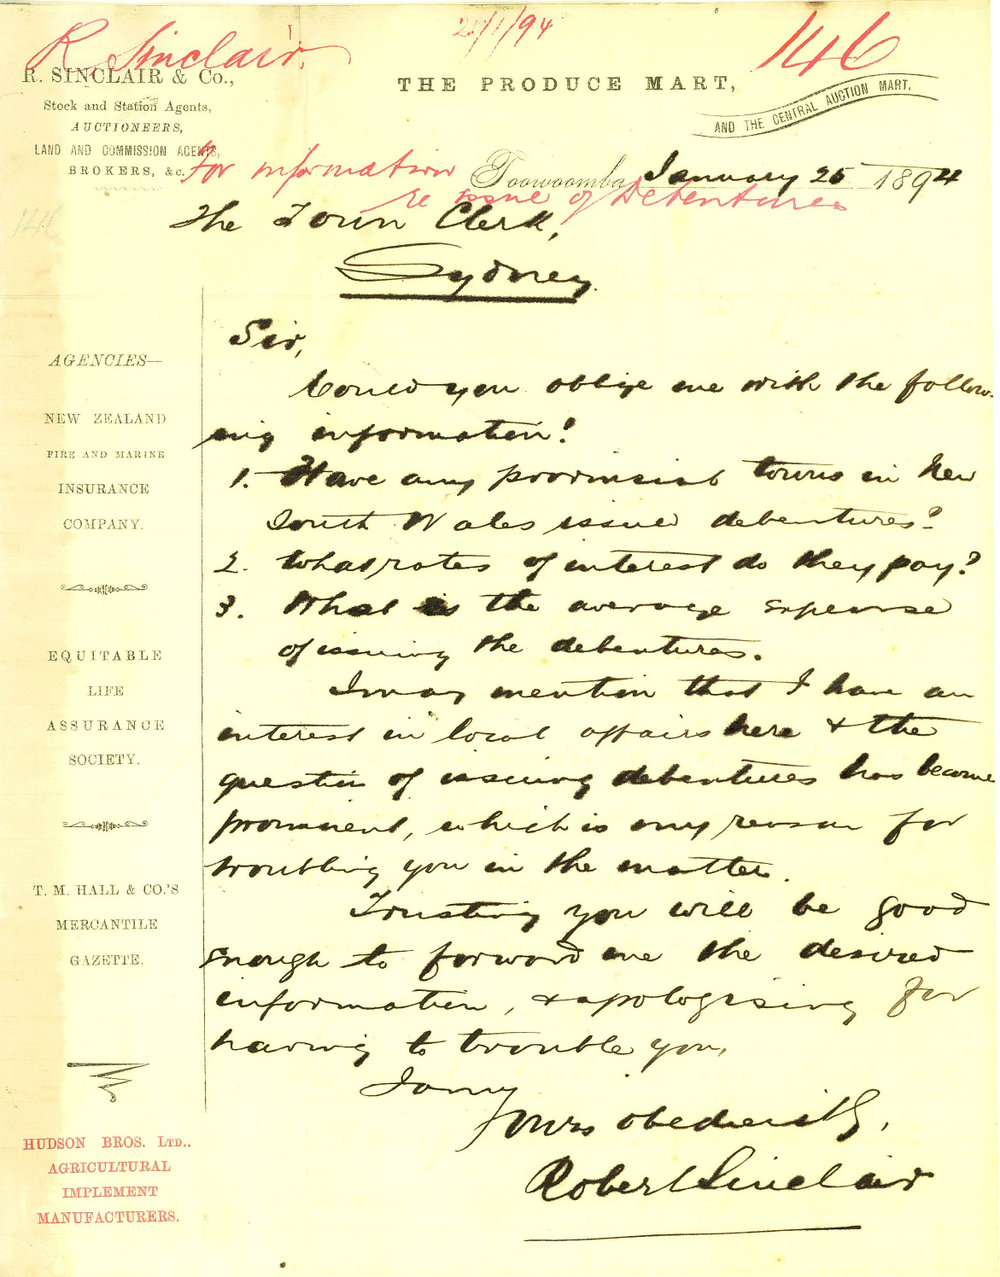 R. Sinclair.
25/1/94
146
R. SINCLAIR & Co.,
Stock and Station Agents,
AUCTIONEERS,
LAND AND COMMISSION AGENTS,
BROKERS, &c.
THE PRODUCE MART,
AND THE CENTRAL AUCTION MART.
For information
re issue of Debentures
Toowoomba, January 25 1894
146
The Town Clerk,
Sydney.
Sir,
Could you oblige me with the follow-
ing information?
1. Have any provincial towns in New
South Wales issued debentures?
2. What rates of interest do they pay?
3. What is the average expense
of issuing the debentures.
I may mention that I have an
interest in local affairs here & the
question of issuing debentures has become
prominent, which is my reason for
troubling you in the matter.
Trusting you will be good
enough to forward me the desired
information, & apologising for
having to trouble you,
I am,
Yours obediently,
Robert Sinclair
AGENCIES—
NEW ZEALAND
FIRE AND MARINE
INSURANCE
COMPANY.
EQUITABLE
LIFE
ASSURANCE
SOCIETY.
T. M. HALL & CO.'S
MERCANTILE
GAZETTE.
HUDSON BROS. LTD.,
AGRICULTURAL
IMPLEMENT
MANUFACTURERS.